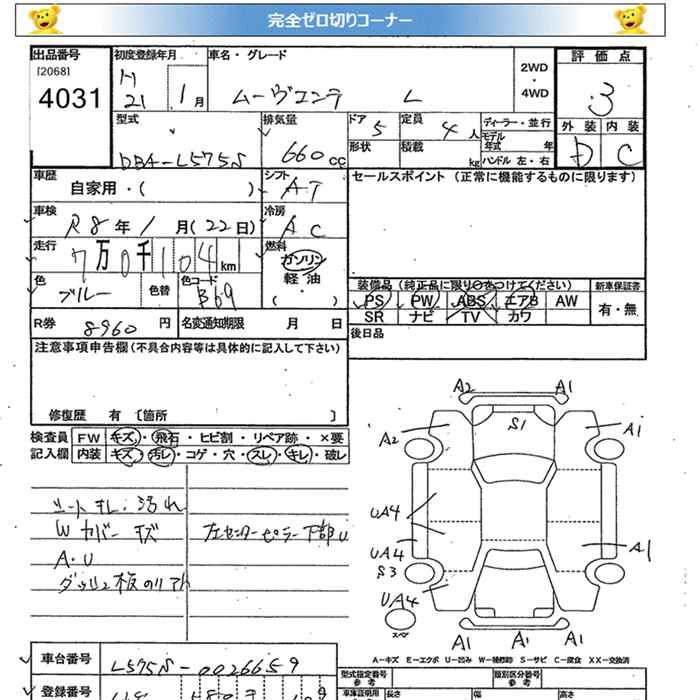 完全ゼロ切りコーナー
出品番号 初度登録年月 車名・グレード 評価点
[2068] 4031 H21 1月 ムーヴコンテ L 2WD・4WD 3
型式 排気量 ドア 5 定員 4人 ディーラー・並行 外装 内装
DBA-L575S 660cc 形状 積載 kg モデル年式 年 ハンドル 左・右 D C
車歴 シフト セールスポイント (正常に機能するものに限ります)
自家用・( ) AT
車検 冷房
R8年 1月(22日) AC
走行 燃料
7万0千104km ガソリン
軽油
色 色替 色コード 装備品 (純正品に限り○をつけてください) 新車保証書
ブルー B69 ( ・ ) PS PW ABS エアB AW 有・無
R券 8960円 名変通知期限 月 日 SR ナビ TV カワ
後日品
注意事項申告欄(不具合内容等は具体的に記入して下さい)
修復歴 有 〔箇所 〕
検査員 FW キズ・飛石・ヒビ割・リペア跡・×要
記入欄 内装 キズ・汚レ・コゲ・穴・スレ・キレ・破レ
シートキレ・汚れ
Wカバーキズ 左センターピラー下部U
A・U
A2 A1
S1
A2 A1
UA4
UA4 A1
S3
UA4
スペア
A1 A1 A1
A-キズ E-エクボ U-凹み W-補修跡 S-サビ C-腐食 XX-交換済
車台番号 L575S-0026659
型式指定番号 類別区分番号
参考 参考
登録番号
車庫証明用 長さ 幅 高さ